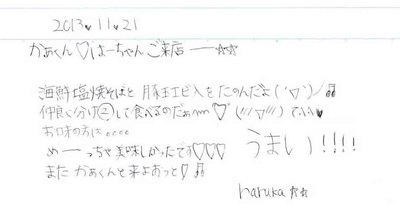 2013♥11♥21
かぁくん♡はーちゃんご来店 ー☆☆
海鮮塩焼そばと 豚玉エビ入をたのんだよ( '▽')ノ♫
仲良く分けっこして食べるのだぁ♡(///▽///)てへへ♥
お味の方は。。。。
めーーっちゃ美味しかったです♡♡♡ うまい!!!!
また かぁくんと来よぉっと♡♫
haruka☆☆